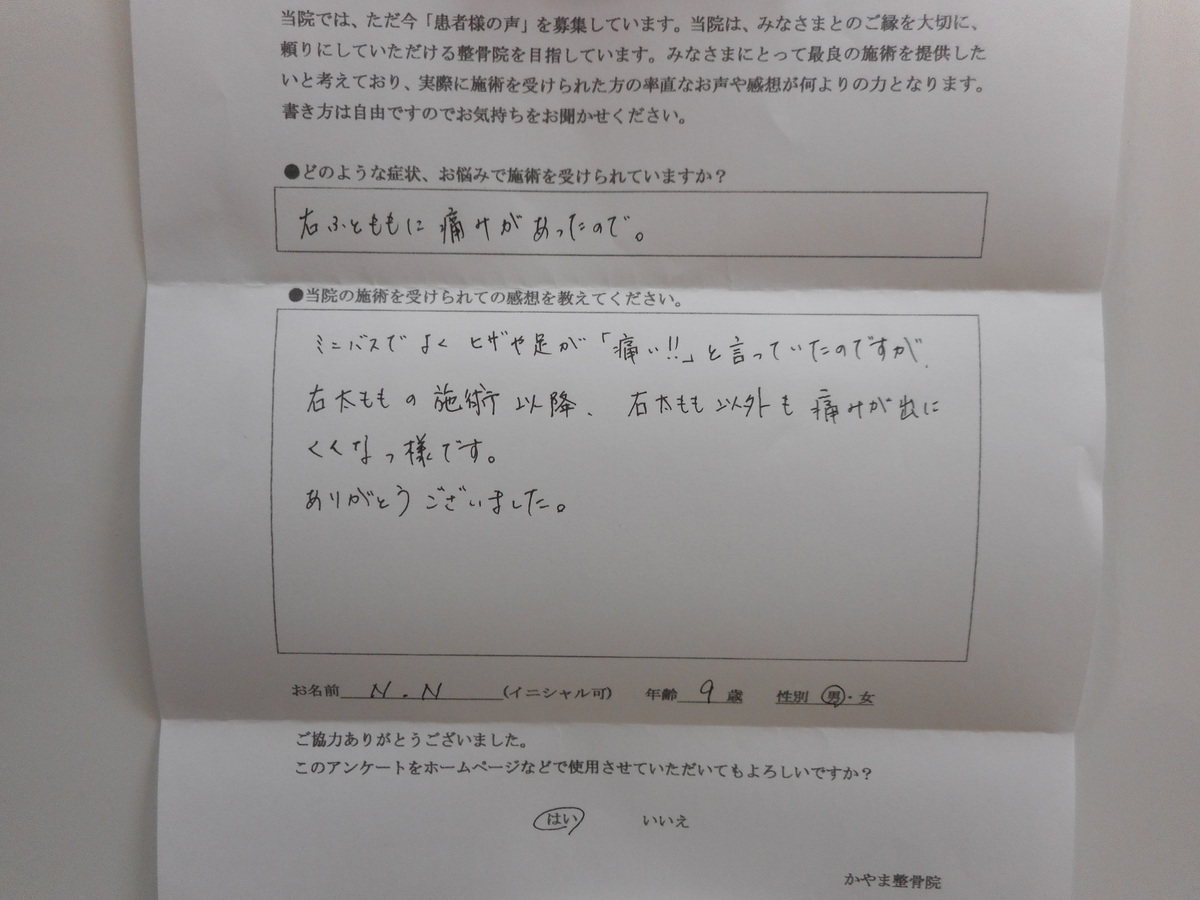 当院では、ただ今「患者様の声」を募集しています。当院は、みなさまとのご縁を大切に、
頼りにしていただける整骨院を目指しています。みなさまにとって最良の施術を提供した
いと考えており、実際に施術を受けられた方の率直なお声や感想が何よりの力となります。
書き方は自由ですのでお気持ちをお聞かせください。
●どのような症状、お悩みで施術を受けられていますか？
右ふとももに痛みがあったので。
●当院の施術を受けられての感想を教えてください。
ミニバスでよくヒザや足が「痛い!!」と言っていたのですが、
右太ももの施術以降、右太もも以外も痛みが出に
くくなっ様です。
ありがとうございました。
お名前 N.N (イニシャル可) 年齢 9 歳 性別 男・女
ご協力ありがとうございました。
このアンケートをホームページなどで使用させていただいてもよろしいですか？
はい いいえ
かやま整骨院